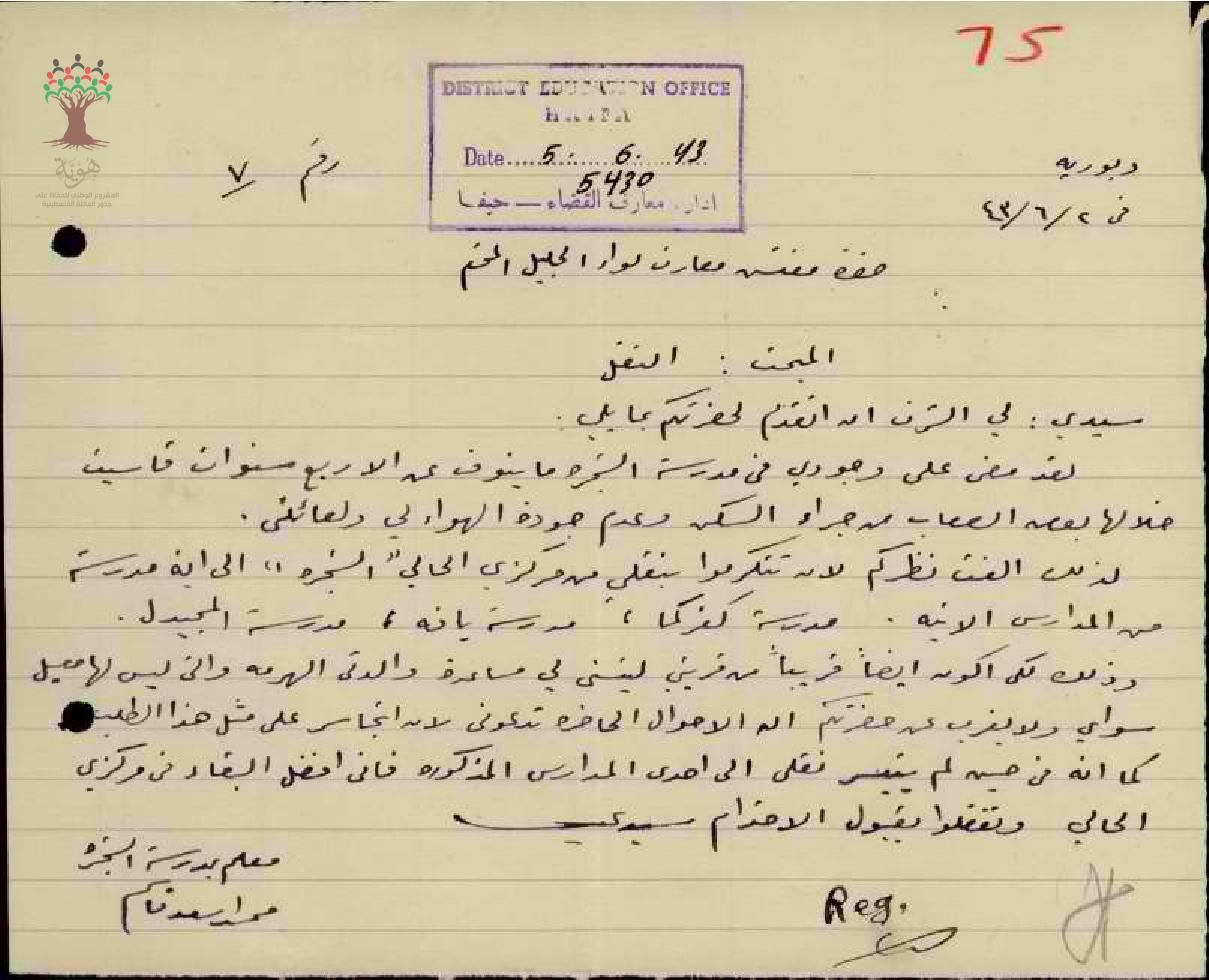 75
DISTRICT EDUCATION OFFICE
HAIFA
Date..... 5. 6. 43
5430
ادارة معارف القضاء — حيفا
هوية
المشروع الوطني للحفاظ على
جذور العائلة الفلسطينية
دبوريه
رقم ٧/
في ٢/٦/٤٣
حضرة مفتش معارف لواء الجليل المحترم
المبحث : النقل
سيدي : لي الشرف ان اتقدم لحضرتكم بما يلي .
لقد مضى على وجودي في مدرسة الشجره ما ينوف عن الاربع سنوات قاسيت
خلالها بعض الصعاب من جراء السكن وعدم جودة الهواء لي ولعائلتي .
لذلك الفت نظركم لان تتكرموا بنقلي من مركزي الحالي "الشجره" الى اية مدرسة
من المدارس الاتيه . مدرسة كفركما ، مدرسة يافه ، مدرسة المجيدل .
وذلك لكي اكون ايضاً قريباً من قريتي ليتسنى لي مساعدة والدتي الهرمه والتي ليس لها معيل
سواي ولا يغرب عن حضرتكم ان الاحوال الحاضره تدعوني لان اتجاسر على مثل هذا الطلب
كما انه في حين لم يتيسر نقلي الى احدى المدارس المذكوره فاني افضل البقاء في مركزي
الحالي وتفضلوا بقبول الاحترام سيدي
معلم مدرسة الشجره
محمد اسعد قاسم
Reg.